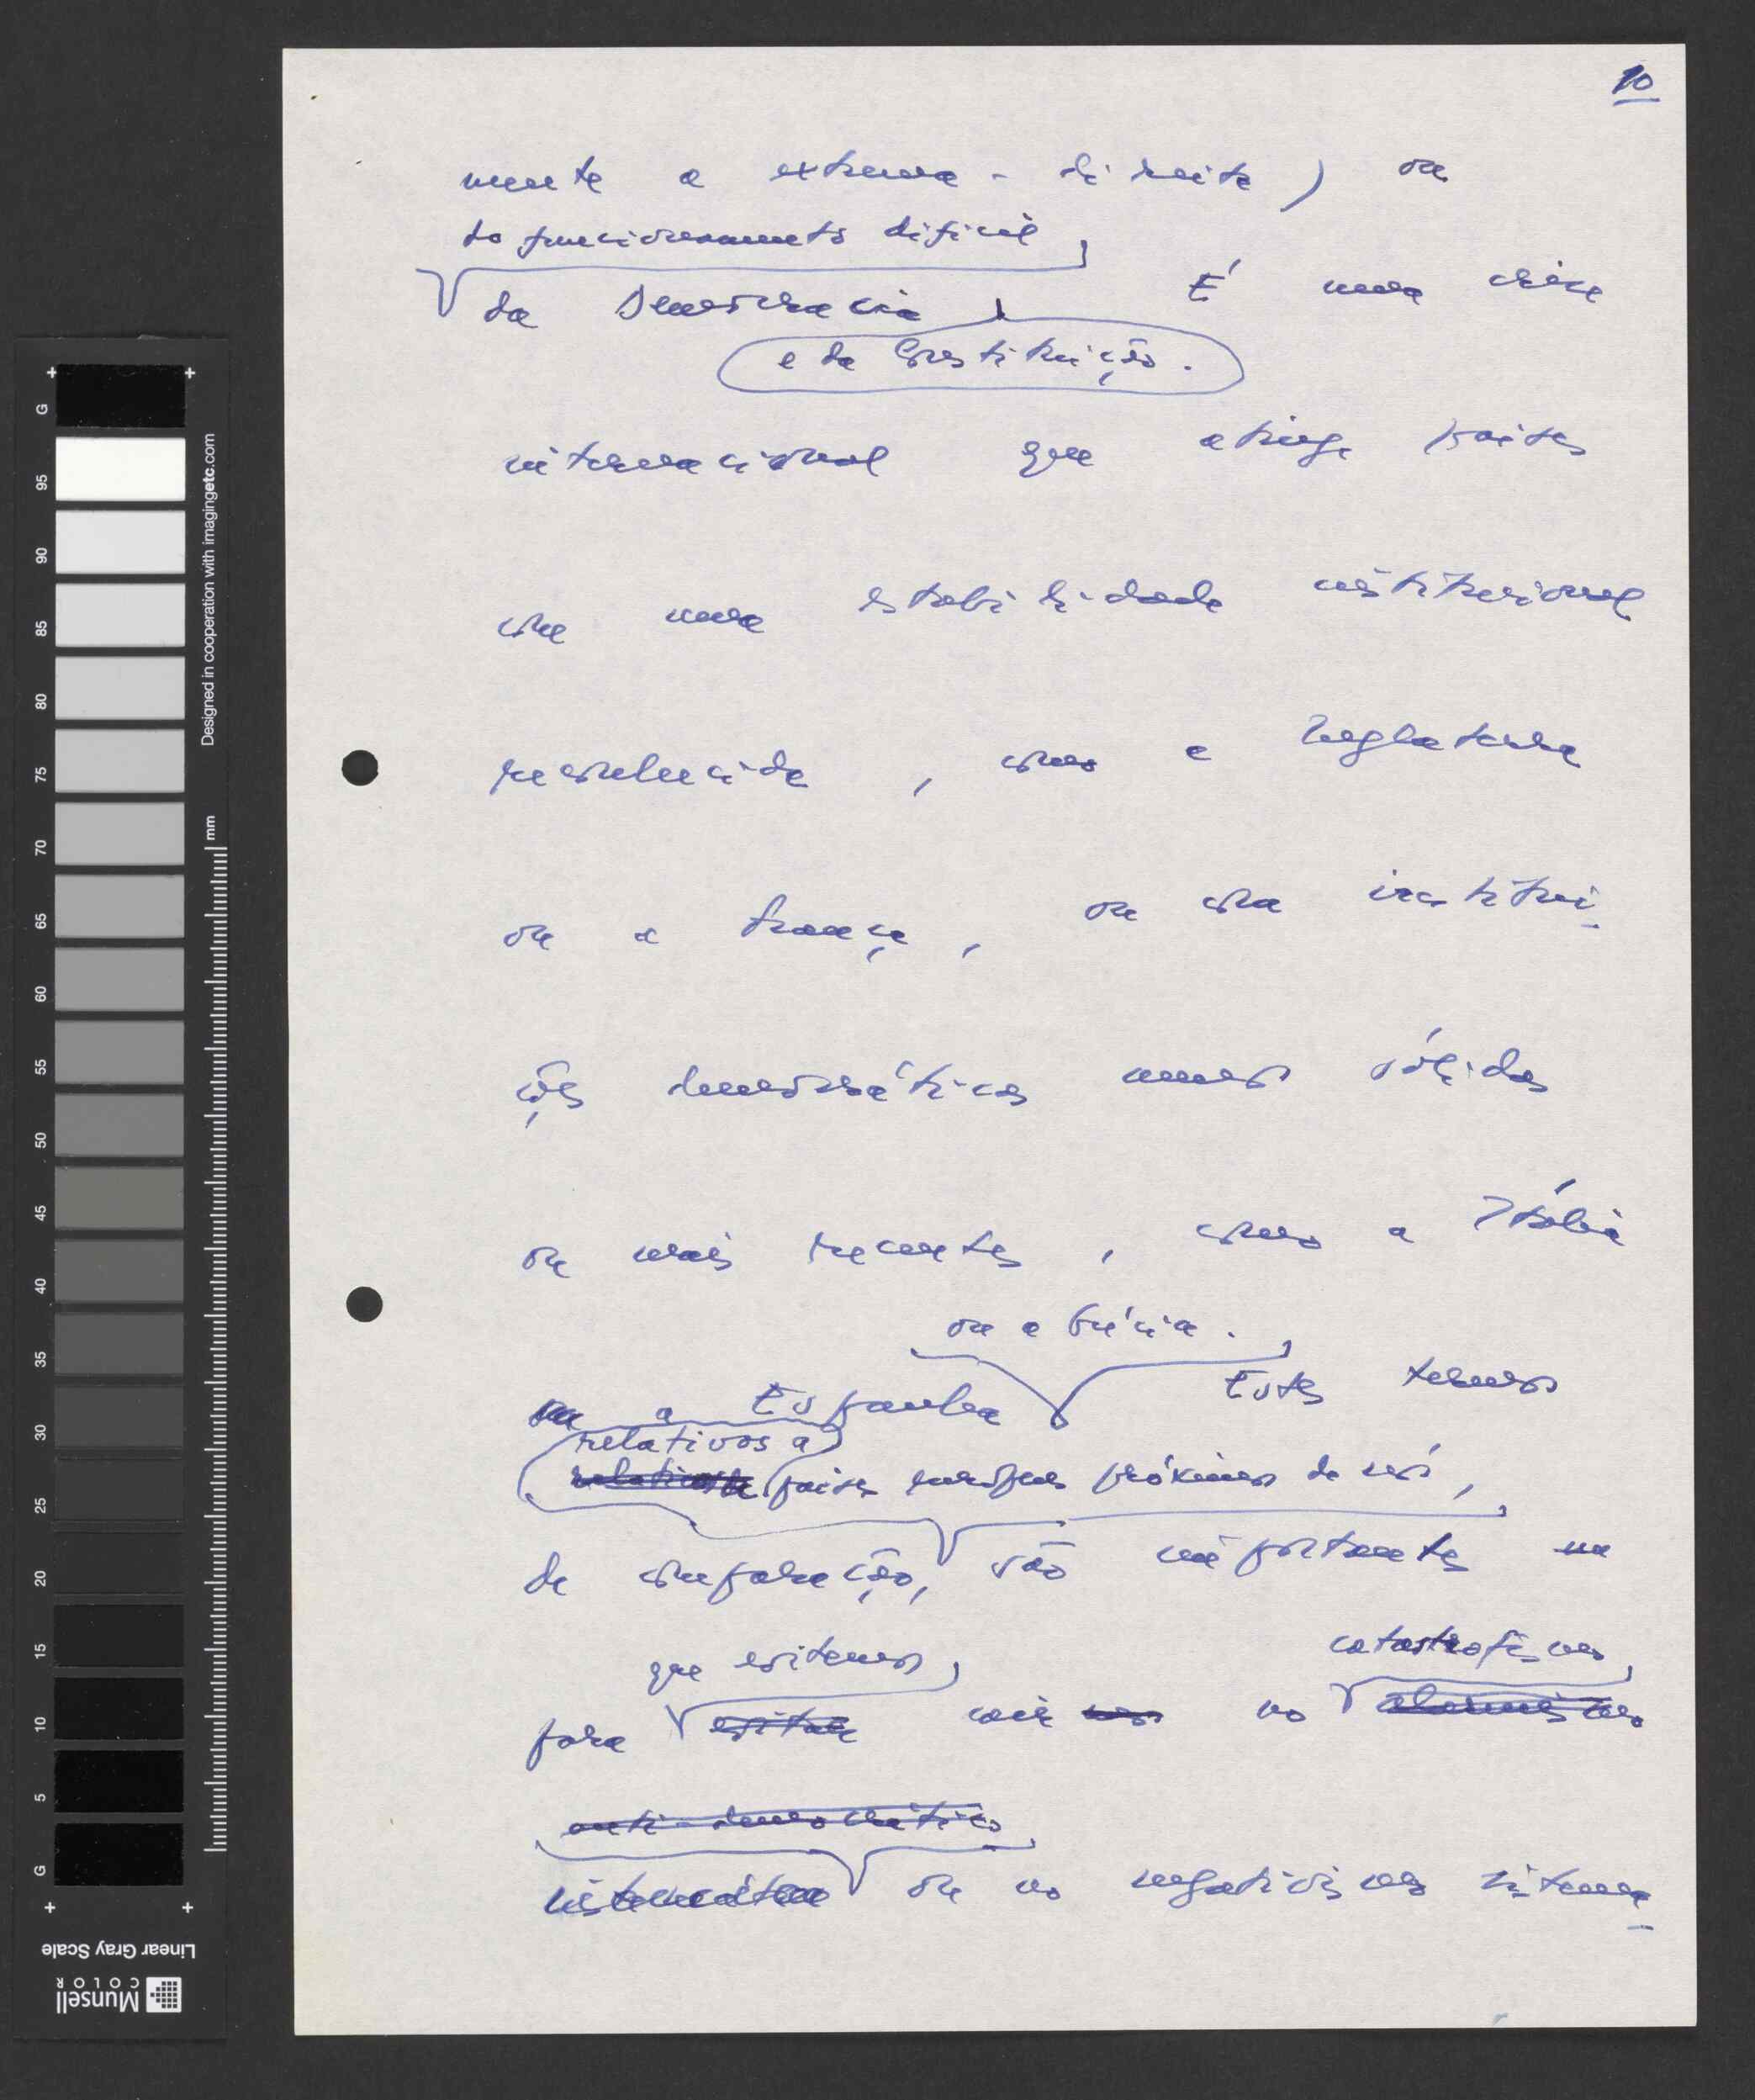 10
mente a extrema-direita) ou
do funcionamento difícil
da Democracia
É uma crise
e da Constituição.
internacional que atinge países
com uma estabilidade institucional
reconhecida, como a Inglaterra
ou a França, ou com institui-
ções democráticas menos sólidas
ou mais recentes, como a Itália
ou a Grécia.
ou a Espanha Estes termos
relativos a
países europeus próximos de nós,
de comparação, são importantes
que evitemos
catastrofismos
para cair no
anti-democrático
ou no negativismo sistema-
G
95
90
85
80
75
70
65
60
55
50
45
40
35
30
25
20
15
10
5
G
Designed in cooperation with imagingetc.com
mm
Linear Gray Scale
Munsell
COLOR